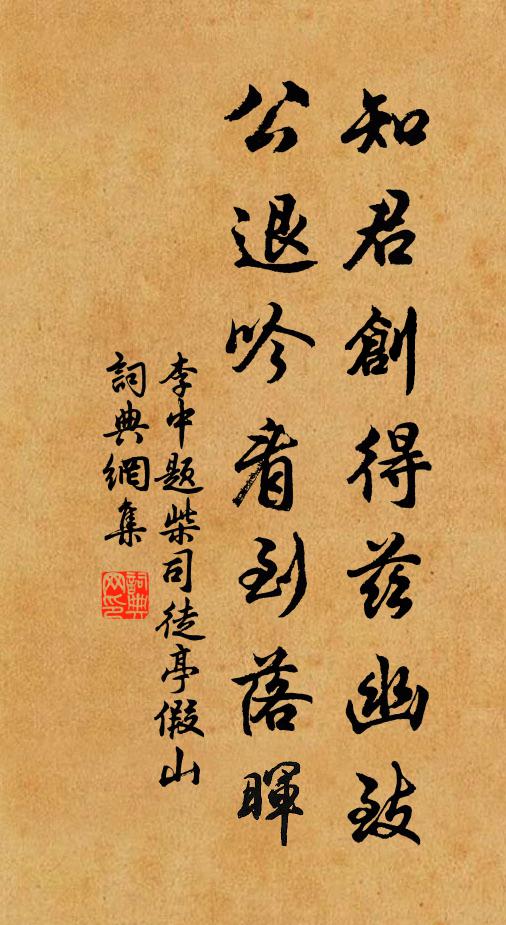 知君創得茲幽致
公退吟看到落暉
李中題柴司徒亭假山
詞典網集
詞典网印